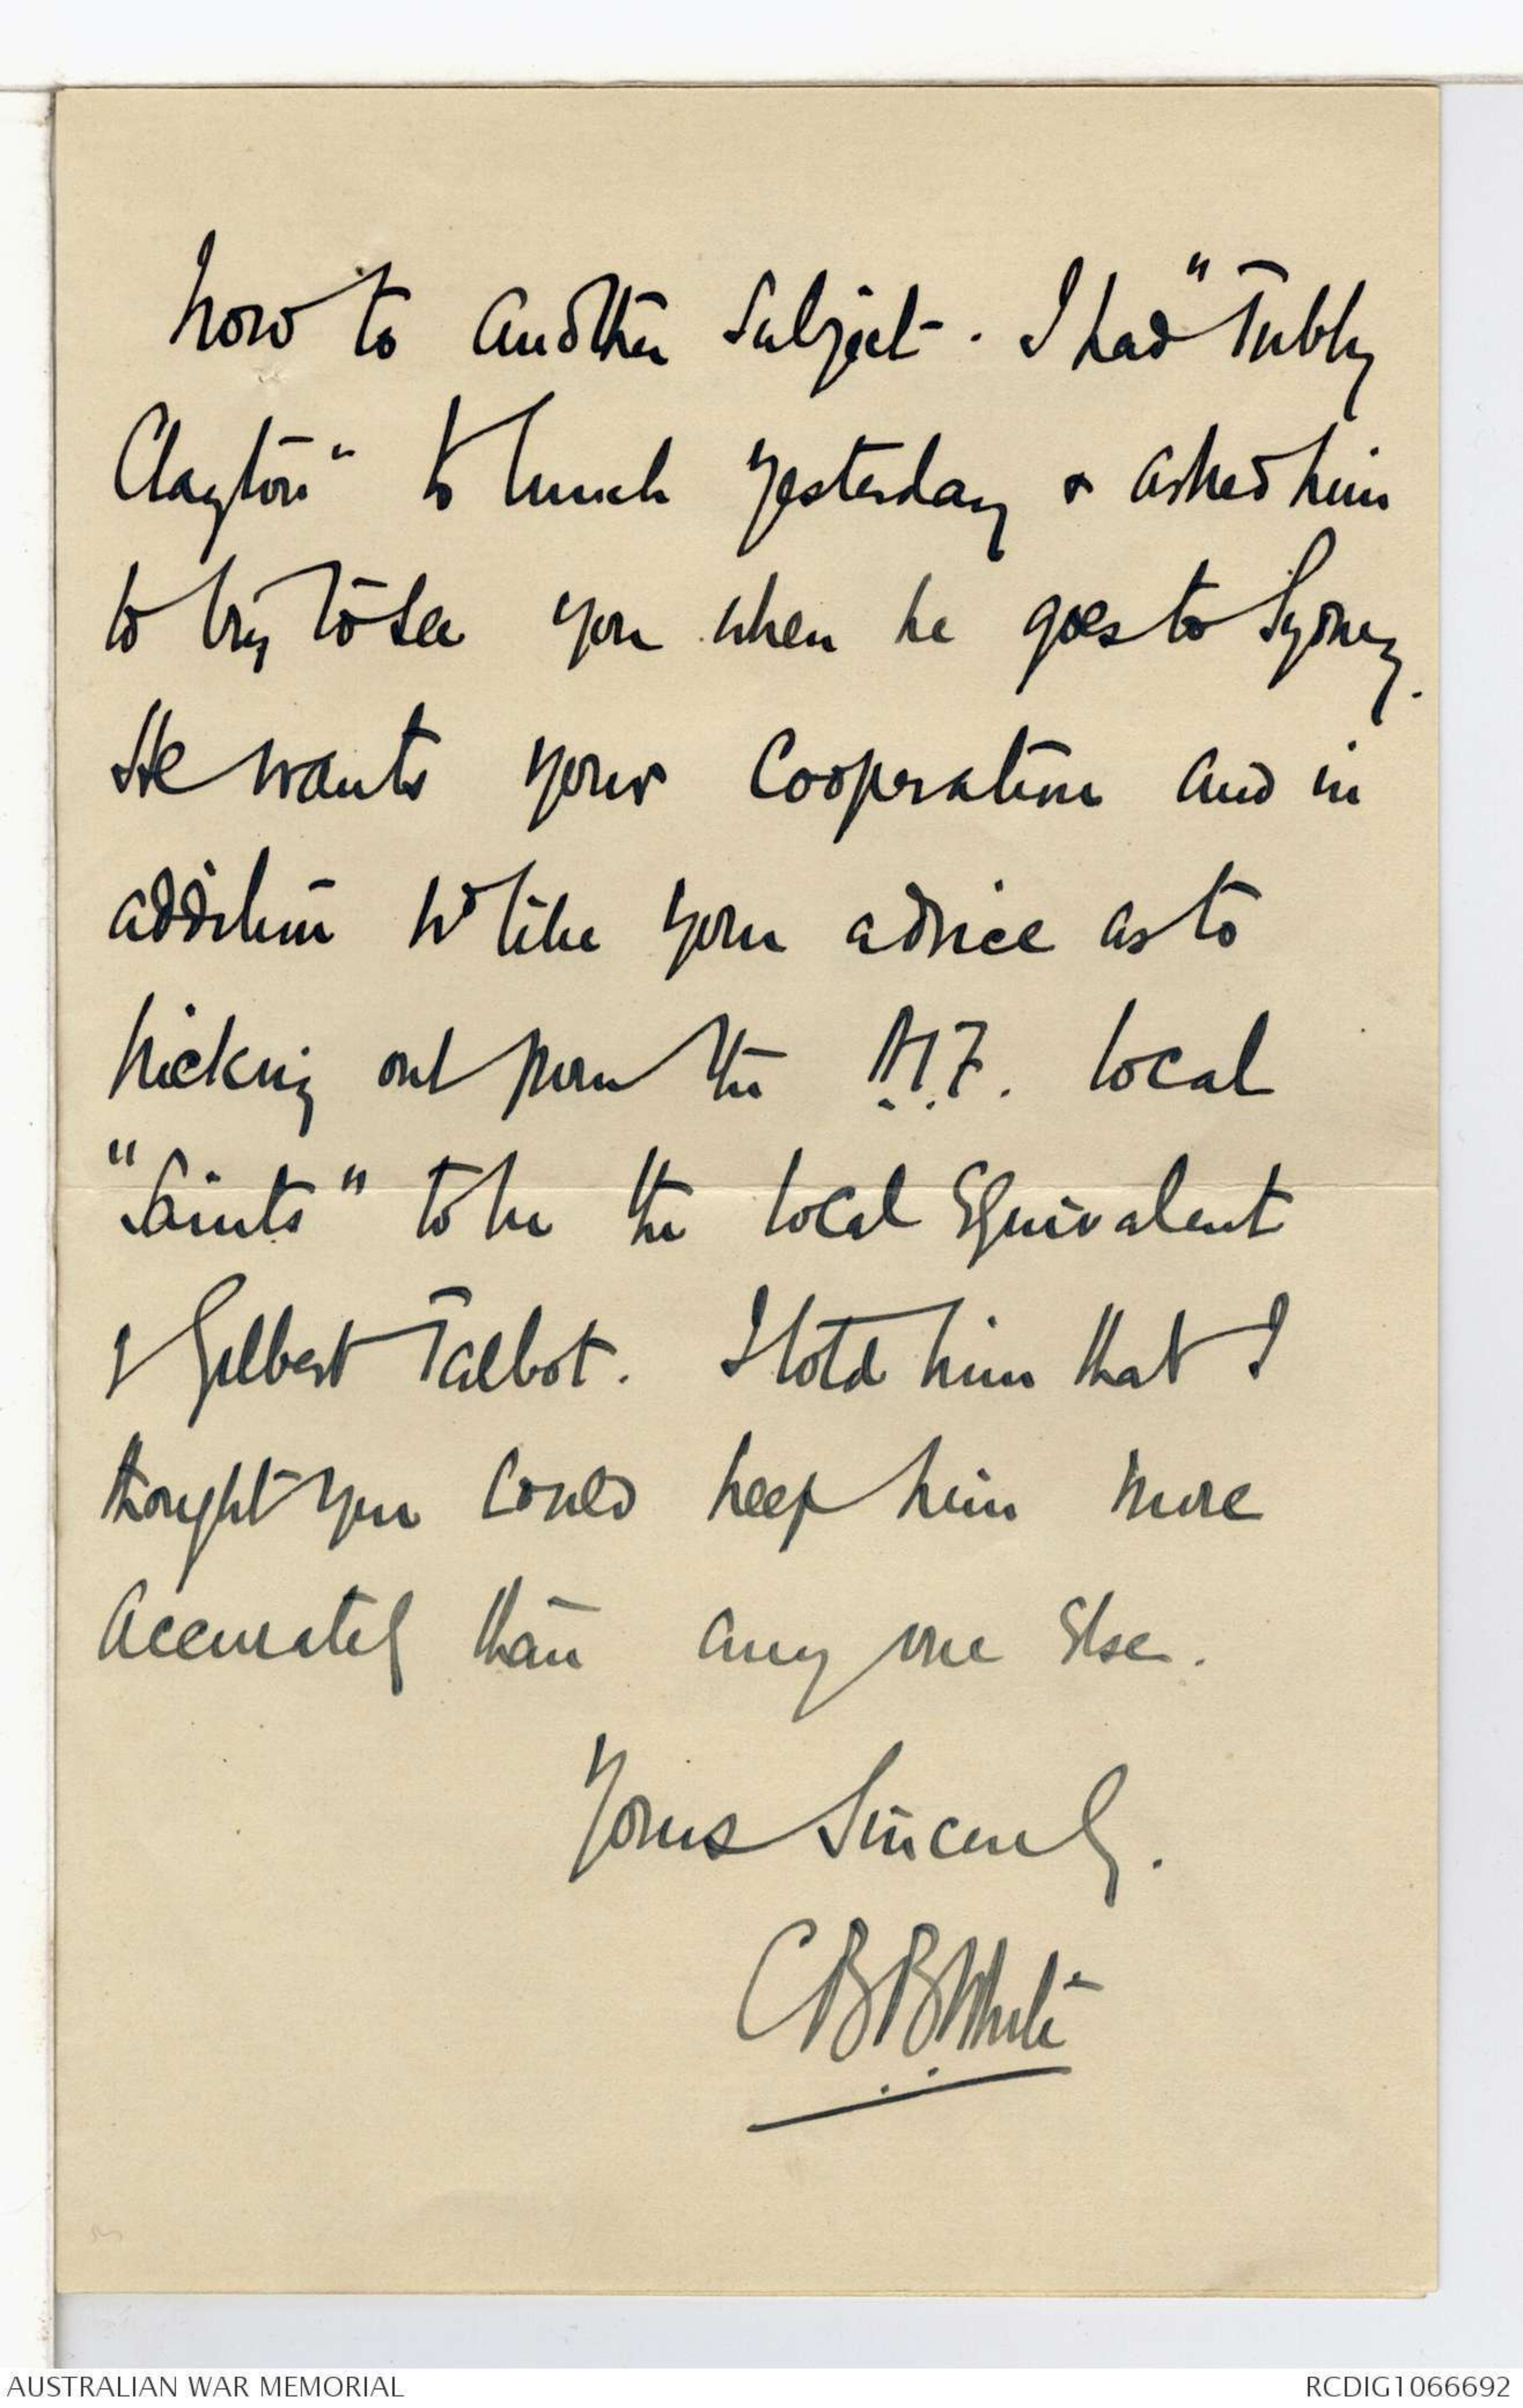 Now to another subject. I had "Tubby
Clayton" to lunch yesterday & asked him
to try to see you when he goes to Sydney.
He wants your cooperation and in
addition wd like your advice as to
picking out from the A.I.F. local
"Saints" to be the local equivalent
of Gilbert Talbot. I told him that I
thought you could help him more
accurately than any one else.
Yours Sincerely.
C B B White
AUSTRALIAN WAR MEMORIAL
RCDIG1066692